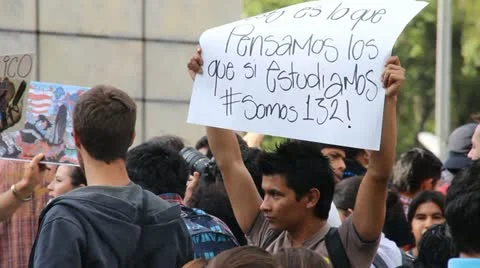 es lo que
Pensamos los
que si estudiamos
#Somos 132!